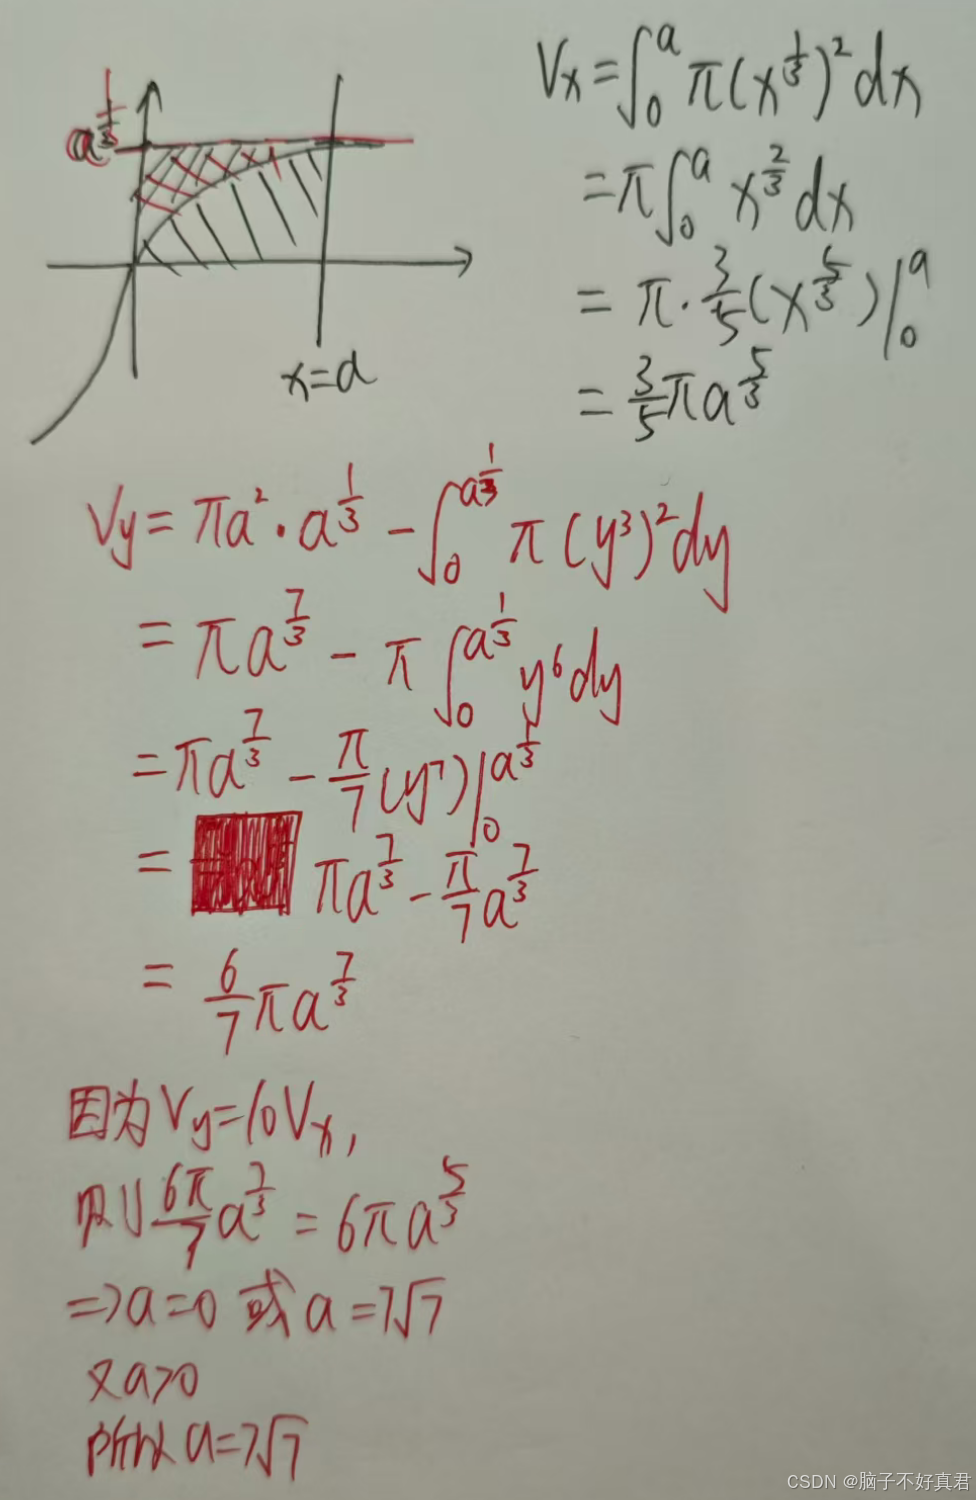 a^{\frac{1}{3}}
x=a
Vx=∫_0^a π(x^{\frac{1}{3}})^2dx
=π∫_0^a x^{\frac{2}{3}}dx
=π·\frac{3}{5}(x^{\frac{5}{3}})|_0^a
=\frac{3}{5}πa^{\frac{5}{3}}
Vy=πa^2·a^{\frac{1}{3}}-∫_0^{a^{\frac{1}{3}}}π(y^3)^2dy
=πa^{\frac{7}{3}}-π∫_0^{a^{\frac{1}{3}}}y^6dy
=πa^{\frac{7}{3}}-\frac{π}{7}(y^7)|_0^{a^{\frac{1}{3}}}
=πa^{\frac{7}{3}}-\frac{π}{7}a^{\frac{7}{3}}
=\frac{6}{7}πa^{\frac{7}{3}}
因为Vy=10Vx,
则\frac{6π}{7}a^{\frac{7}{3}}=6πa^{\frac{5}{3}}
=>a=0或a=7√7
又a>0
所以a=7√7
CSDN @脑子不好真君